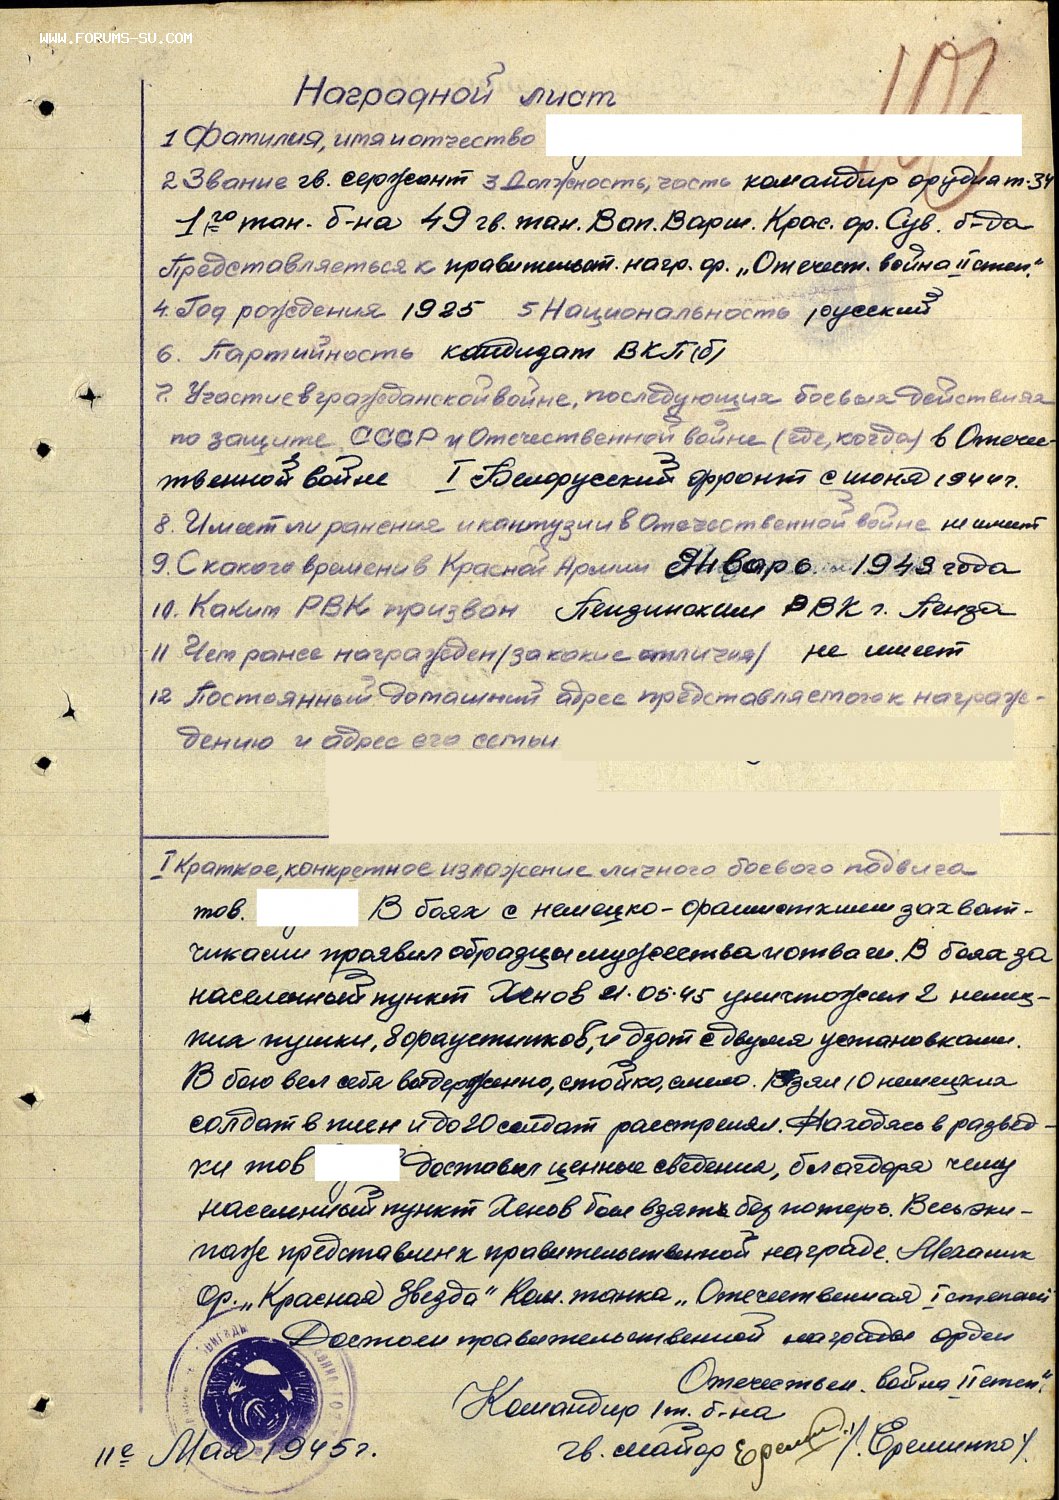 WWW.FORUMS-SU.COM
107
Наградной лист
1 Фамилия, имя и отчество
2 Звание гв. сержант 3 Должность, часть командир орудия т-34
1го тан. б-на 49 гв. тан. Вап. Варш. Крас. ор. Сув. б-да
Представляеться к правительст. нагр. ор. „Отечест. война II степ."
4. Год рождения 1925 5 Национальность русский
6. Партийность кандидат ВКП(б)
7. Участие в гражданской войне, последующих боевых действиях
по защите СССР и Отечественной войне (где, когда) в Отече-
ственной войне I Белорусский фронт с июня 1944г.
8. Имеет ли ранения и контузии в Отечественной войне не имеет
9. С какого времени в Красной Армии Январь 1943 года
10. Каким РВК призван Пензинским РВК г. Пенза
11 Чем ранее награжден /за какие отличия/ не имеет
12 Постоянный домашний адрес представляемого к награж-
дению и адрес его семьи
I Краткое, конкретное изложение личного боевого подвига
тов. В боях с немецко-фашистскими захват-
чиками проявил образцы мужества и отваги. В боях за
населенный пункт Хенов 01.05.45 уничтожил 2 немец-
ких пушки, 8 фаустников, и дзот с двумя установками.
В бою вел себя выдержанно, стойко, смело. Взял 10 немецких
солдат в плен и до 20 солдат расстрелял. Находясь в развед-
ки тов доставил ценные сведения, благодоря чему
населенный пункт Хенов был взять без потерь. Весь эки-
паж представлен к правительственной награде. Механик
ор. „Красная Звезда" Ком. танка „Отечественная I степени
Достоин правительственной награды орден
Отечествен. война II степ."
Командир 1 т. б-на
гв. майор /Ереминко/
11е Мая 1945г.